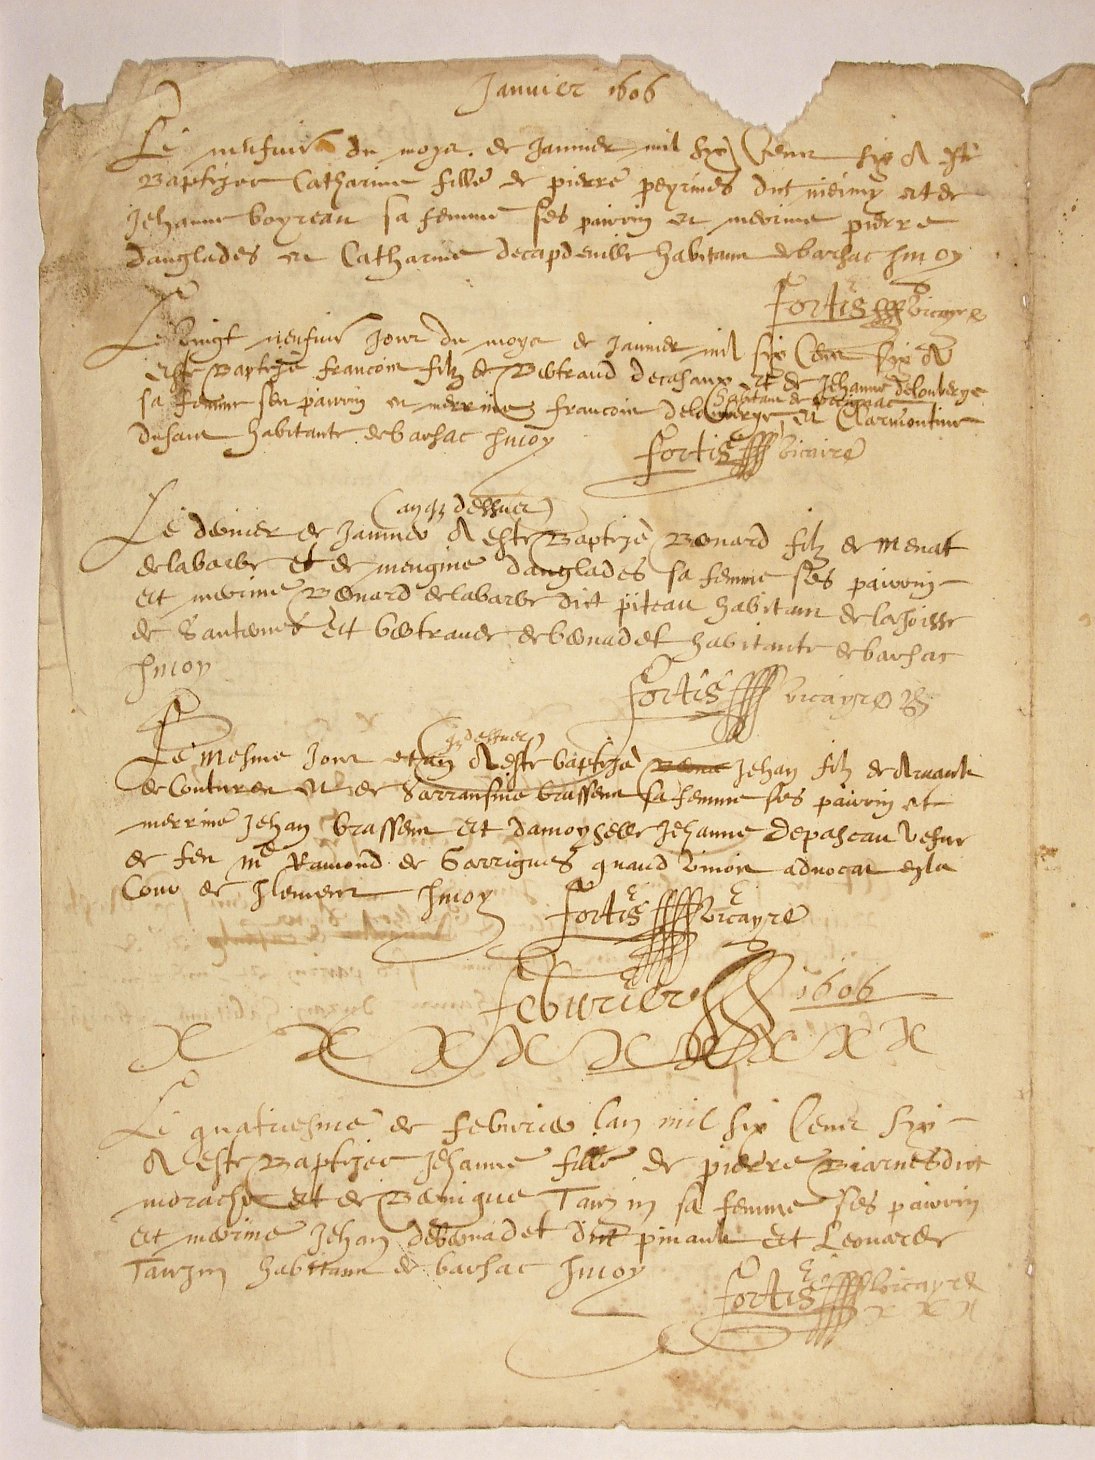 Janvier 1606
Le neufvie du moys de Janvier mil six Cens six A este
Baptizee Catharine fille de pierre peyrines dict et de
Jehanne boyreau sa femme ses pairrin et merrine pierre
danglades et Catharine decapdeville habitans debarsac
Fortis vicayre
Le vingt neufvie Jour du moys de Janvier mil six Cens six A
este Baptize francois filz de Bertrand decasaux et de Jehanne delouberge
sa femme ses pairrin et merrine francois delouberge habitant de et Clarmontine
dusault habitante debarsac
Fortis vicaire
(an dessus)
Le dernier de Janvier A este Baptize Bernard filz de Menat
delabarbe et de mengine danglades sa femme ses pairrin
et merrine Bernard delabarbe dict piteau habitant de
de Sauternes Et bertrande debernadet habitante debarsac
Fortis vicayre
(dessus)
Le mesme Jour et an A este baptize Jehan filz de Arnault
de Couturen et de brassens sa femme ses pairrin et
merrine Jehan brassens et damoyselle Jehanne Depascau vefve
de feu me Ramond de Garrigues quand vivoit advocat en la
Cour de
Fortis vicayre
Febvrier 1606
Le quatriesme de febvrier lan mil six Cens six
A este Baptizee Jehanne fille de pierre Biarnes dict
et de Benigue Tauzin sa femme ses pairrin
et merrine Jehan debernadet dict pinault Et Leonarde
Tauzin habitans de barsac
Fortis vicayre